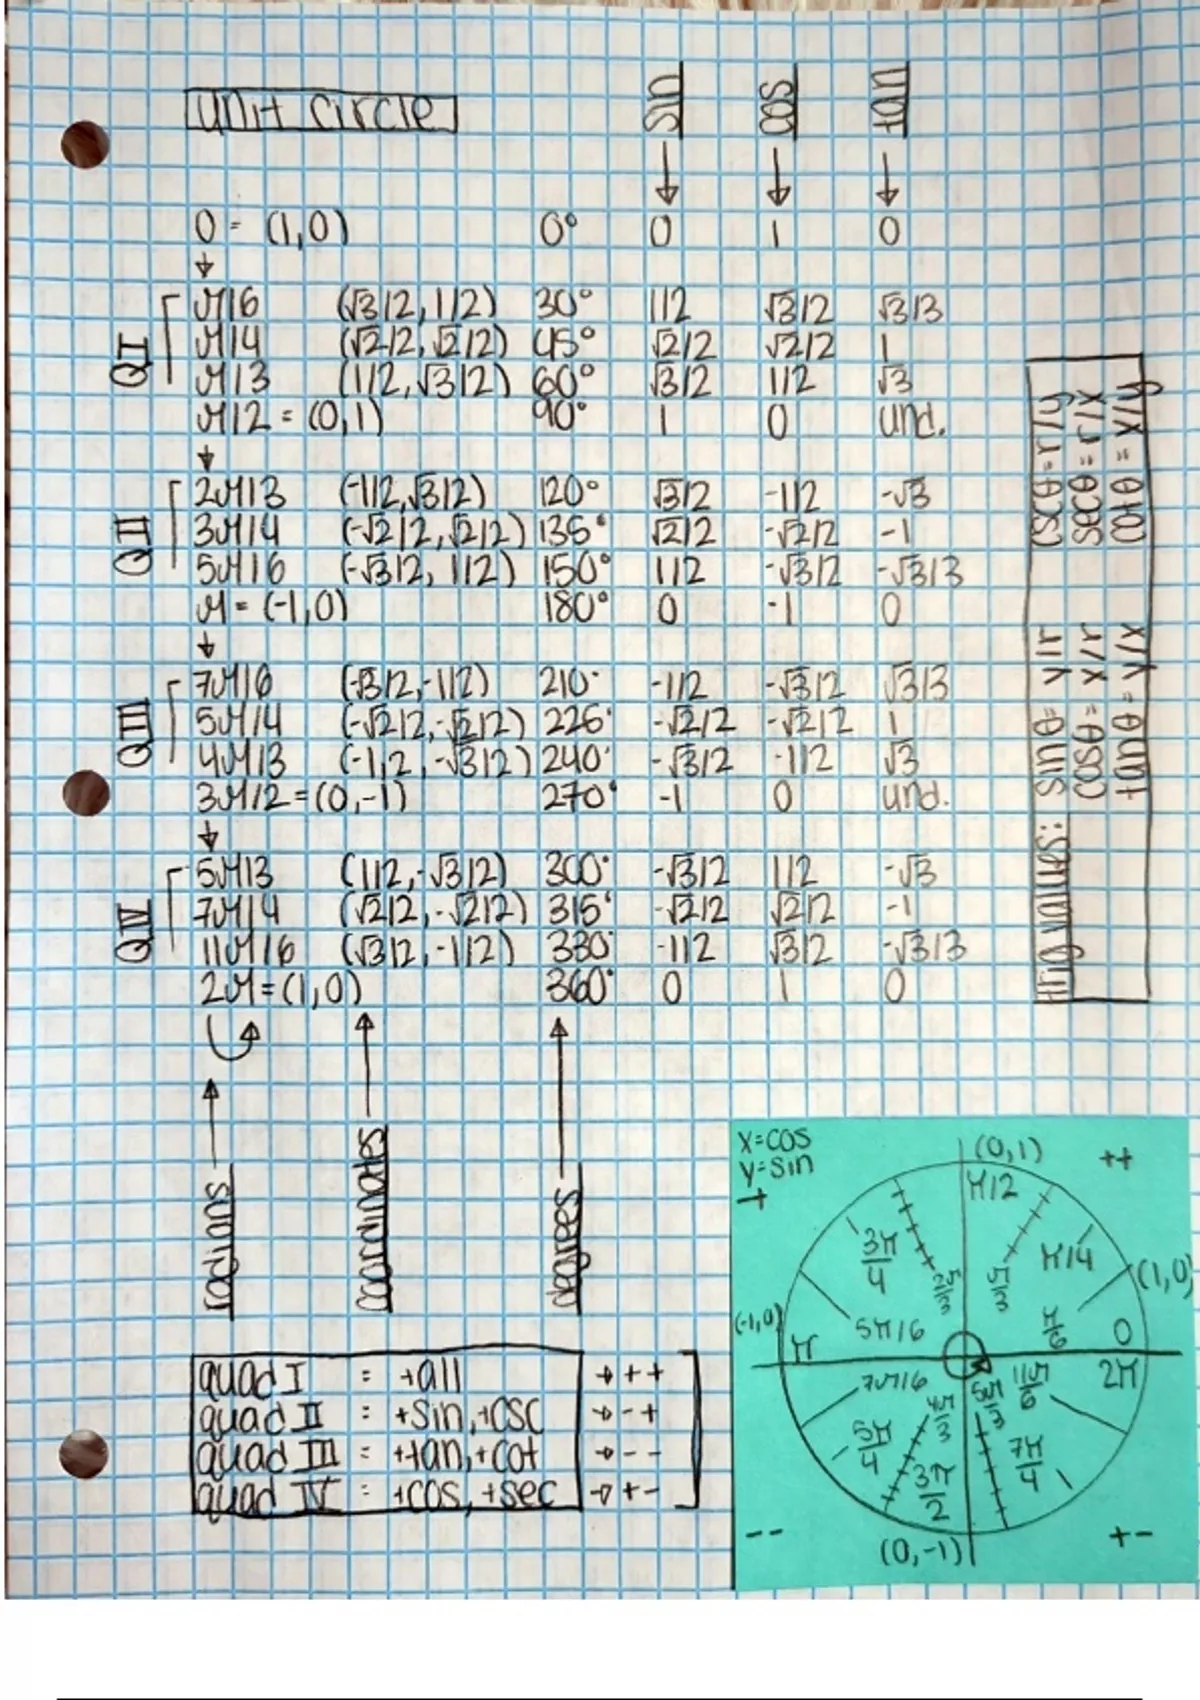 unit circle
sin cos tan
0 = (1,0) 0° 0 1 0
QI
π/6 (√3/2, 1/2) 30° 1/2 √3/2 √3/3
π/4 (√2/2, √2/2) 45° √2/2 √2/2 1
π/3 (1/2, √3/2) 60° √3/2 1/2 √3
π/2 = (0,1) 90° 1 0 und.
QII
2π/3 (-1/2, √3/2) 120° √3/2 -1/2 -√3
3π/4 (-√2/2, √2/2) 135° √2/2 -√2/2 -1
5π/6 (-√3/2, 1/2) 150° 1/2 -√3/2 -√3/3
π = (-1,0) 180° 0 -1 0
QIII
7π/6 (-√3/2, -1/2) 210° -1/2 -√3/2 √3/3
5π/4 (-√2/2, -√2/2) 226° -√2/2 -√2/2 1
4π/3 (-1,2, -√3/2) 240° -√3/2 -1/2 √3
3π/2 = (0,-1) 270° -1 0 und.
QIV
5π/3 (1/2, -√3/2) 300° -√3/2 1/2 -√3
7π/4 (√2/2, -√2/2) 315° -√2/2 √2/2 -1
11π/6 (√3/2, -1/2) 330° -1/2 √3/2 -√3/3
2π = (1,0) 360° 0 1 0
radians
coordinates
degrees
trig values: sinθ = y/r cscθ = r/y
cosθ = x/r secθ = r/x
tanθ = y/x cotθ = x/y
quad I = +all → ++
quad II = +sin, +csc → -+
quad III = +tan, +cot → --
quad IV = +cos, +sec → +-
x=cos
y=sin
-+
(0,1)
++
π/2
3π/4
2π/3
π/3
π/4
(1,0)
(-1,0)
5π/6
π/6
0
π
2π
7π/6
4π/3
5π/3
11π/6
5π/4
3π/2
7π/4
--
(0,-1)
+-